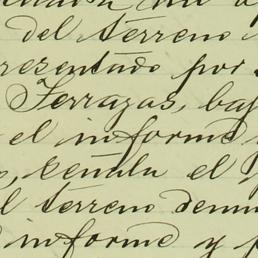 del terreno
resentado por
Terrazas, baj
el informe
señala el
l terreno denun
informe y p